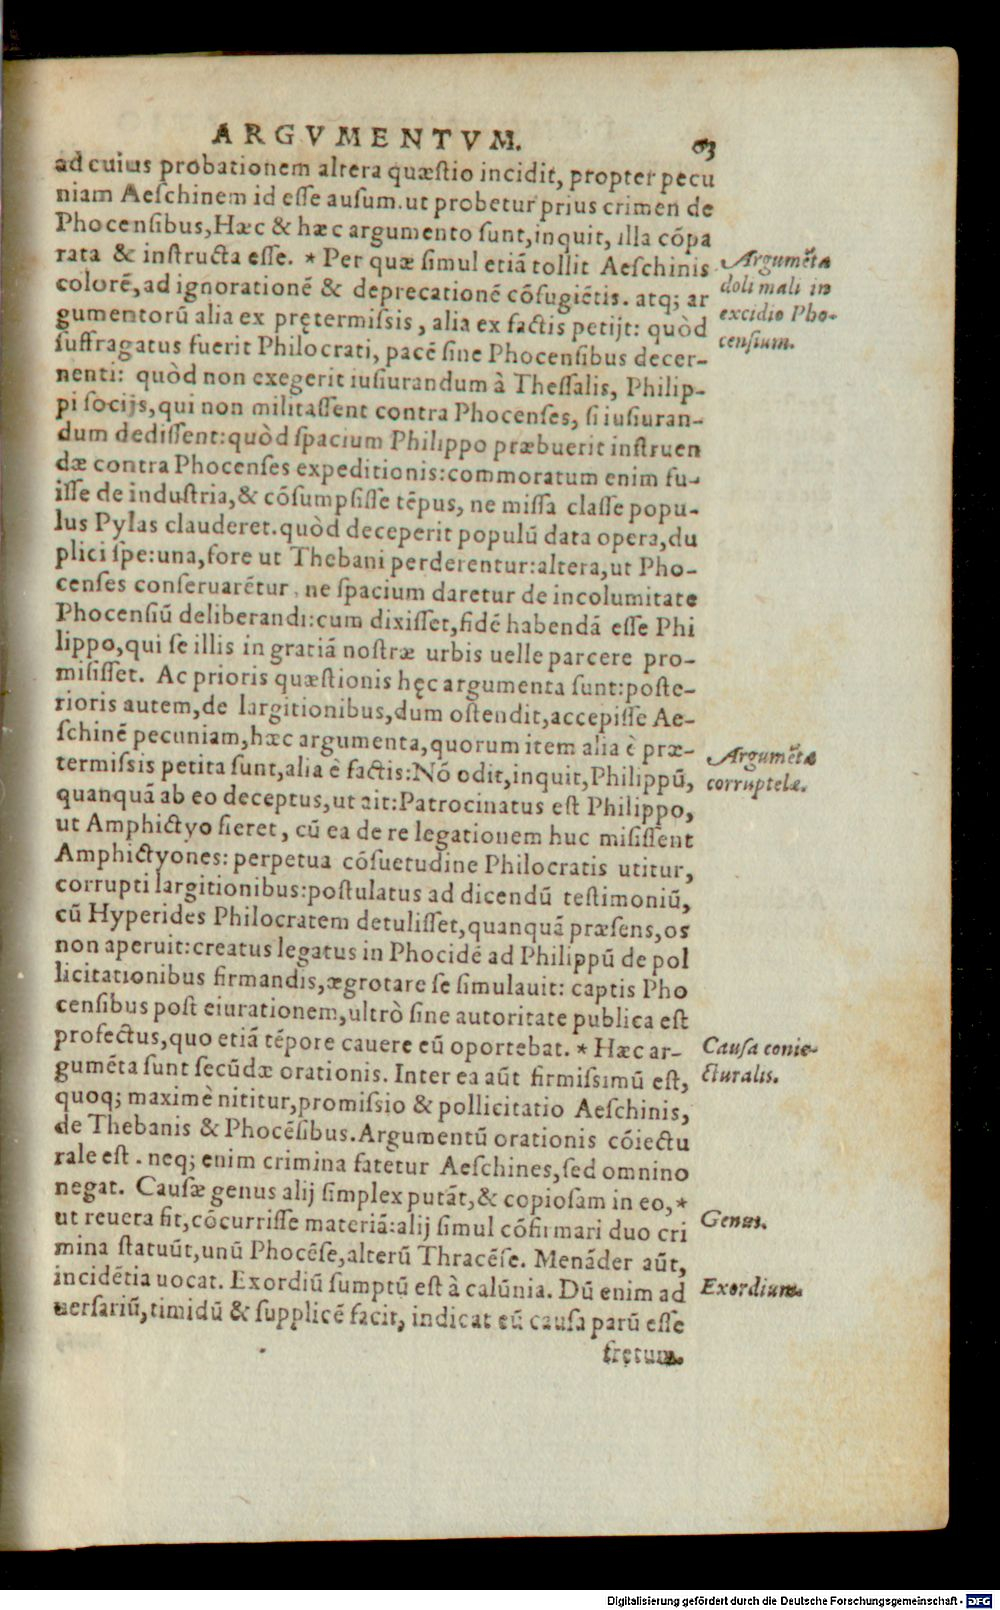 ARGVMENTVM. 63
ad cuius probationem altera quæſtio incidit, propter pecu
niam Aeſchinem id eſſe auſum. ut probetur prius crimen de
Phocenſibus, Hæc & hæc argumento ſunt, inquit, illa cõpa
rata & inſtructa eſſe. * Per quæ ſimul etiã tollit Aeſchinis
colorẽ, ad ignorationẽ & deprecationẽ cõfugiẽtis. atq; ar
gumentorũ alia ex prętermiſsis, alia ex factis petijt: quòd
ſuffragatus fuerit Philocrati, pacẽ ſine Phocenſibus decer-
nenti: quòd non exegerit iuſiurandum à Theſſalis, Philip-
pi ſocijs, qui non militaſſent contra Phocenſes, ſi iuſiuran-
dum dediſſent: quòd ſpacium Philippo præbuerit inſtruen
dæ contra Phocenſes expeditionis: commoratum enim fu-
iſſe de induſtria, & cõſumpſiſſe tẽpus, ne miſſa claſſe popu-
lus Pylas clauderet. quòd deceperit populũ data opera, du
plici ſpe: una, fore ut Thebani perderentur: altera, ut Pho-
cenſes conſeruarẽtur, ne ſpacium daretur de incolumitate
Phocenſiũ deliberandi: cum dixiſſet, fidẽ habendã eſſe Phi
lippo, qui ſe illis in gratiã noſtræ urbis uelle parcere pro-
miſiſſet. Ac prioris quæſtionis hęc argumenta ſunt: poſte-
rioris autem, de largitionibus, dum oſtendit, accepiſſe Ae-
ſchinẽ pecuniam, hæc argumenta, quorum item alia è præ-
termiſsis petita ſunt, alia è factis: Nõ odit, inquit, Philippũ,
quanquã ab eo deceptus, ut ait: Patrocinatus eſt Philippo,
ut Amphictyo fieret, cũ ea de re legationem huc miſiſſent
Amphictyones: perpetua cõſuetudine Philocratis utitur,
corrupti largitionibus: poſtulatus ad dicendũ teſtimoniũ,
cũ Hyperides Philocratem detuliſſet, quanquã præſens, os
non aperuit: creatus legatus in Phocidẽ ad Philippũ de pol
licitationibus firmandis, ægrotare ſe ſimulauit: captis Pho
cenſibus poſt eiurationem, ultrò ſine autoritate publica eſt
profectus, quo etiã tẽpore cauere eũ oportebat. * Hæc ar-
gumẽta ſunt ſecũdæ orationis. Inter ea aũt firmiſsimũ eſt,
quoq; maximè nititur, promiſsio & pollicitatio Aeſchinis,
de Thebanis & Phocẽſibus. Argumentũ orationis cõiectu
rale eſt. neq; enim crimina fatetur Aeſchines, ſed omnino
negat. Cauſæ genus alij ſimplex putãt, & copioſam in eo, *
ut reuera fit, cõcurriſſe materiã: alij ſimul cõfirmari duo cri
mina ſtatuũt, unũ Phocẽſe, alterũ Thracẽſe. Menãder aũt,
incidẽtia uocat. Exordiũ ſumptũ eſt à calũnia. Dũ enim ad
uerſariũ, timidũ & ſupplicẽ facit, indicat eũ cauſa parũ eſſe
fretum.
Argumẽta
doli mali in
excidio Pho-
cenſium.
Argumẽta
corruptelæ.
Cauſa conie-
cturalis.
Genus.
Exordium.
Digitalisierung gefördert durch die Deutsche Forschungsgemeinschaft - DFG